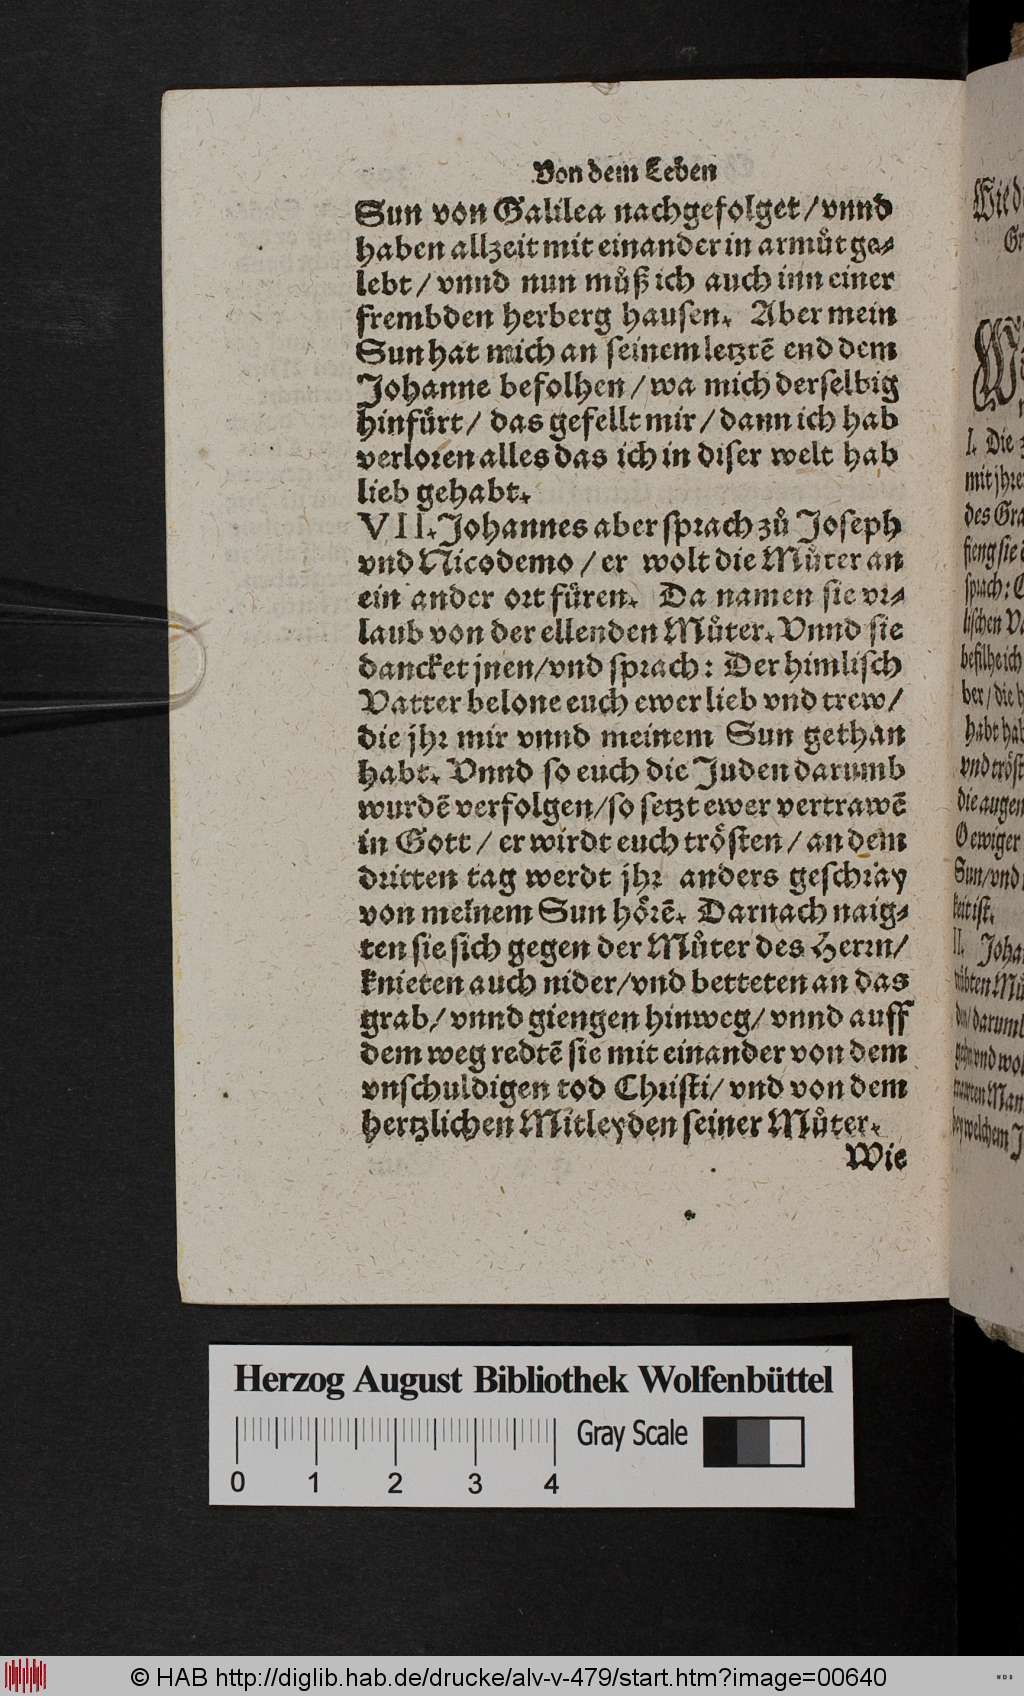 Von dem Leben
Sun von Galilea nachgefolget / vnnd
haben allzeit mit einander in armůt ge⸗
lebt / vnnd nun můß ich auch inn einer
frembden herberg hausen. Aber mein
Sun hat mich an seinem letztē end dem
Johanne befolhen / wa mich derselbig
hinfürt / das gefellt mir / dann ich hab
verloren alles das ich in diser welt hab
lieb gehabt.
VII. Johannes aber sprach zů Joseph
vnd Nicodemo / er wolt die Můter an
ein ander ort füren. Da namen sie vr⸗
laub von der ellenden Můter. Vnnd sie
dancket jnen / vnd sprach: Der himlisch
Vatter belone euch ewer lieb vnd trew /
die jhr mir vnnd meinem Sun gethan
habt. Vnnd so euch die Juden darumb
wurdē verfolgen / so setzt ewer vertrawē
in Gott / er wirdt euch trösten / an dem
dritten tag werdt jhr anders geschray
von meinem Sun hörē. Darnach naig⸗
ten sie sich gegen der Můter des Herrn /
knieten auch nider / vnd betteten an das
grab / vnnd giengen hinweg / vnnd auff
dem weg redtē sie mit einander von dem
vnschuldigen tod Christi / vnd von dem
hertzlichen Mitleyden seiner Můter.
Wie
I. Die
mit jhre
des Gra
fieng sie
sprach:
lischen Va
befilhe ich
ber / die
habt hab
vnd tröst
die augen
O ewiger
Sun / vnd
keit ist.
II. Joha
übten Mů
darumb
vnd wol
Man
welchem J
Herzog August Bibliothek Wolfenbüttel
Gray Scale
0 1 2 3 4
© HAB http://diglib.hab.de/drucke/alv-v-479/start.htm?image=00640